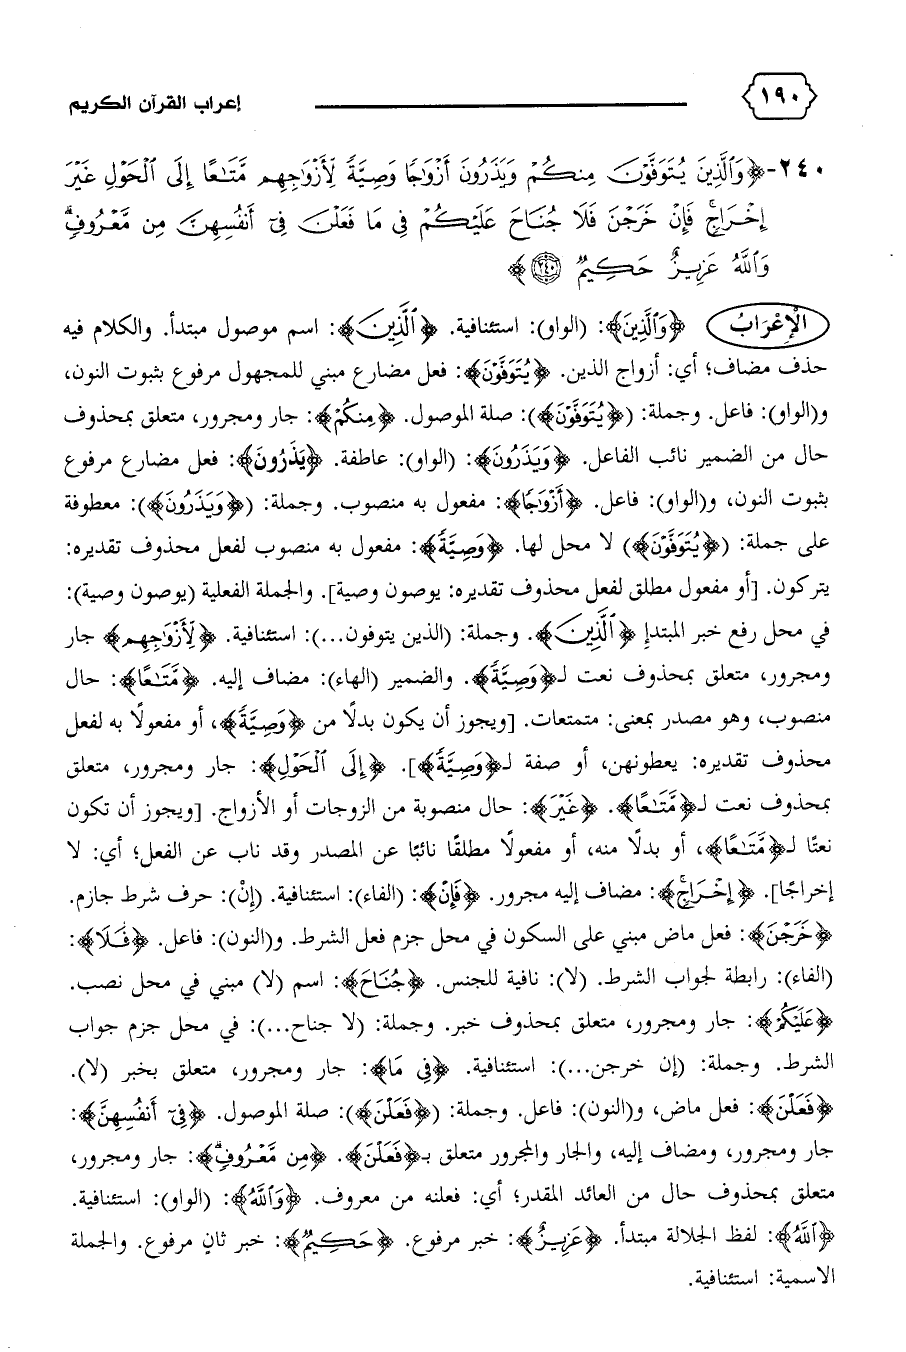 ١٩٠
إعراب القرآن الكريم
٢٤٠-﴿وَٱلَّذِينَ يُتَوَفَّوْنَ مِنكُمْ وَيَذَرُونَ أَزْوَٰجًا وَصِيَّةً لِّأَزْوَٰجِهِم مَّتَٰعًا إِلَى ٱلْحَوْلِ غَيْرَ
إِخْرَاجٍ ۚ فَإِنْ خَرَجْنَ فَلَا جُنَاحَ عَلَيْكُمْ فِى مَا فَعَلْنَ فِىٓ أَنفُسِهِنَّ مِن مَّعْرُوفٍ ۗ
وَٱللَّهُ عَزِيزٌ حَكِيمٌ ٢٤٠﴾
الْإِعْرَابُ ﴿وَٱلَّذِينَ﴾: (الواو): استئنافية. ﴿ٱلَّذِينَ﴾: اسم موصول مبتدأ. والكلام فيه
حذف مضاف؛ أي: أزواج الذين. ﴿يُتَوَفَّوْنَ﴾: فعل مضارع مبني للمجهول مرفوع بثبوت النون،
و(الواو): فاعل. وجملة: (﴿يُتَوَفَّوْنَ﴾): صلة الموصول. ﴿مِنكُمْ﴾: جار ومجرور، متعلق بمحذوف
حال من الضمير نائب الفاعل. ﴿وَيَذَرُونَ﴾: (الواو): عاطفة. ﴿يَذَرُونَ﴾: فعل مضارع مرفوع
بثبوت النون، و(الواو): فاعل. ﴿أَزْوَٰجًا﴾: مفعول به منصوب. وجملة: (﴿وَيَذَرُونَ﴾): معطوفة
على جملة: (﴿يُتَوَفَّوْنَ﴾) لا محل لها. ﴿وَصِيَّةً﴾: مفعول به منصوب لفعل محذوف تقديره:
يتركون. [أو مفعول مطلق لفعل محذوف تقديره: يوصون وصية]. والجملة الفعلية (يوصون وصية):
في محل رفع خبر المبتدإ ﴿ٱلَّذِينَ﴾. وجملة: (الذين يتوفون...): استئنافية. ﴿لِّأَزْوَٰجِهِم﴾ جار
ومجرور، متعلق بمحذوف نعت لـ﴿وَصِيَّةً﴾. والضمير (الهاء): مضاف إليه. ﴿مَّتَٰعًا﴾: حال
منصوب، وهو مصدر بمعنى: متمتعات. [ويجوز أن يكون بدلًا من ﴿وَصِيَّةً﴾، أو مفعولًا به لفعل
محذوف تقديره: يعطونهن، أو صفة لـ﴿وَصِيَّةً﴾]. ﴿إِلَى ٱلْحَوْلِ﴾: جار ومجرور، متعلق
بمحذوف نعت لـ﴿مَّتَٰعًا﴾. ﴿غَيْرَ﴾: حال منصوبة من الزوجات أو الأزواج. [ويجوز أن تكون
نعتًا لـ﴿مَّتَٰعًا﴾، أو بدلًا منه، أو مفعولًا مطلقًا نائبًا عن المصدر وقد ناب عن الفعل؛ أي: لا
إخراجًا]. ﴿إِخْرَاجٍ ۚ﴾: مضاف إليه مجرور. ﴿فَإِنْ﴾: (الفاء): استئنافية. (إنْ): حرف شرط جازم.
﴿خَرَجْنَ﴾: فعل ماض مبني على السكون في محل جزم فعل الشرط. و(النون): فاعل. ﴿فَلَا﴾:
(الفاء): رابطة لجواب الشرط. (لا): نافية للجنس. ﴿جُنَاحَ﴾: اسم (لا) مبني في محل نصب.
﴿عَلَيْكُمْ﴾: جار ومجرور، متعلق بمحذوف خبر. وجملة: (لا جناح...): في محل جزم جواب
الشرط. وجملة: (إن خرجن...): استئنافية. ﴿فِى مَا﴾: جار ومجرور، متعلق بخبر (لا).
﴿فَعَلْنَ﴾: فعل ماض، و(النون): فاعل. وجملة: (﴿فَعَلْنَ﴾): صلة الموصول. ﴿فِىٓ أَنفُسِهِنَّ﴾:
جار ومجرور، ومضاف إليه، والجار والمجرور متعلق بـ﴿فَعَلْنَ﴾. ﴿مِن مَّعْرُوفٍ ۗ﴾: جار ومجرور،
متعلق بمحذوف حال من العائد المقدر؛ أي: فعلنه من معروف. ﴿وَٱللَّهُ﴾: (الواو): استئنافية.
﴿ٱللَّهُ﴾: لفظ الجلالة مبتدأ. ﴿عَزِيزٌ﴾: خبر مرفوع. ﴿حَكِيمٌ﴾: خبر ثانٍ مرفوع. والجملة
الاسمية: استئنافية.